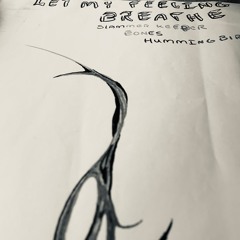 LET MY FEELING
BREATHE
SLAMMER KEEPER
BONES
HUMMING BIR